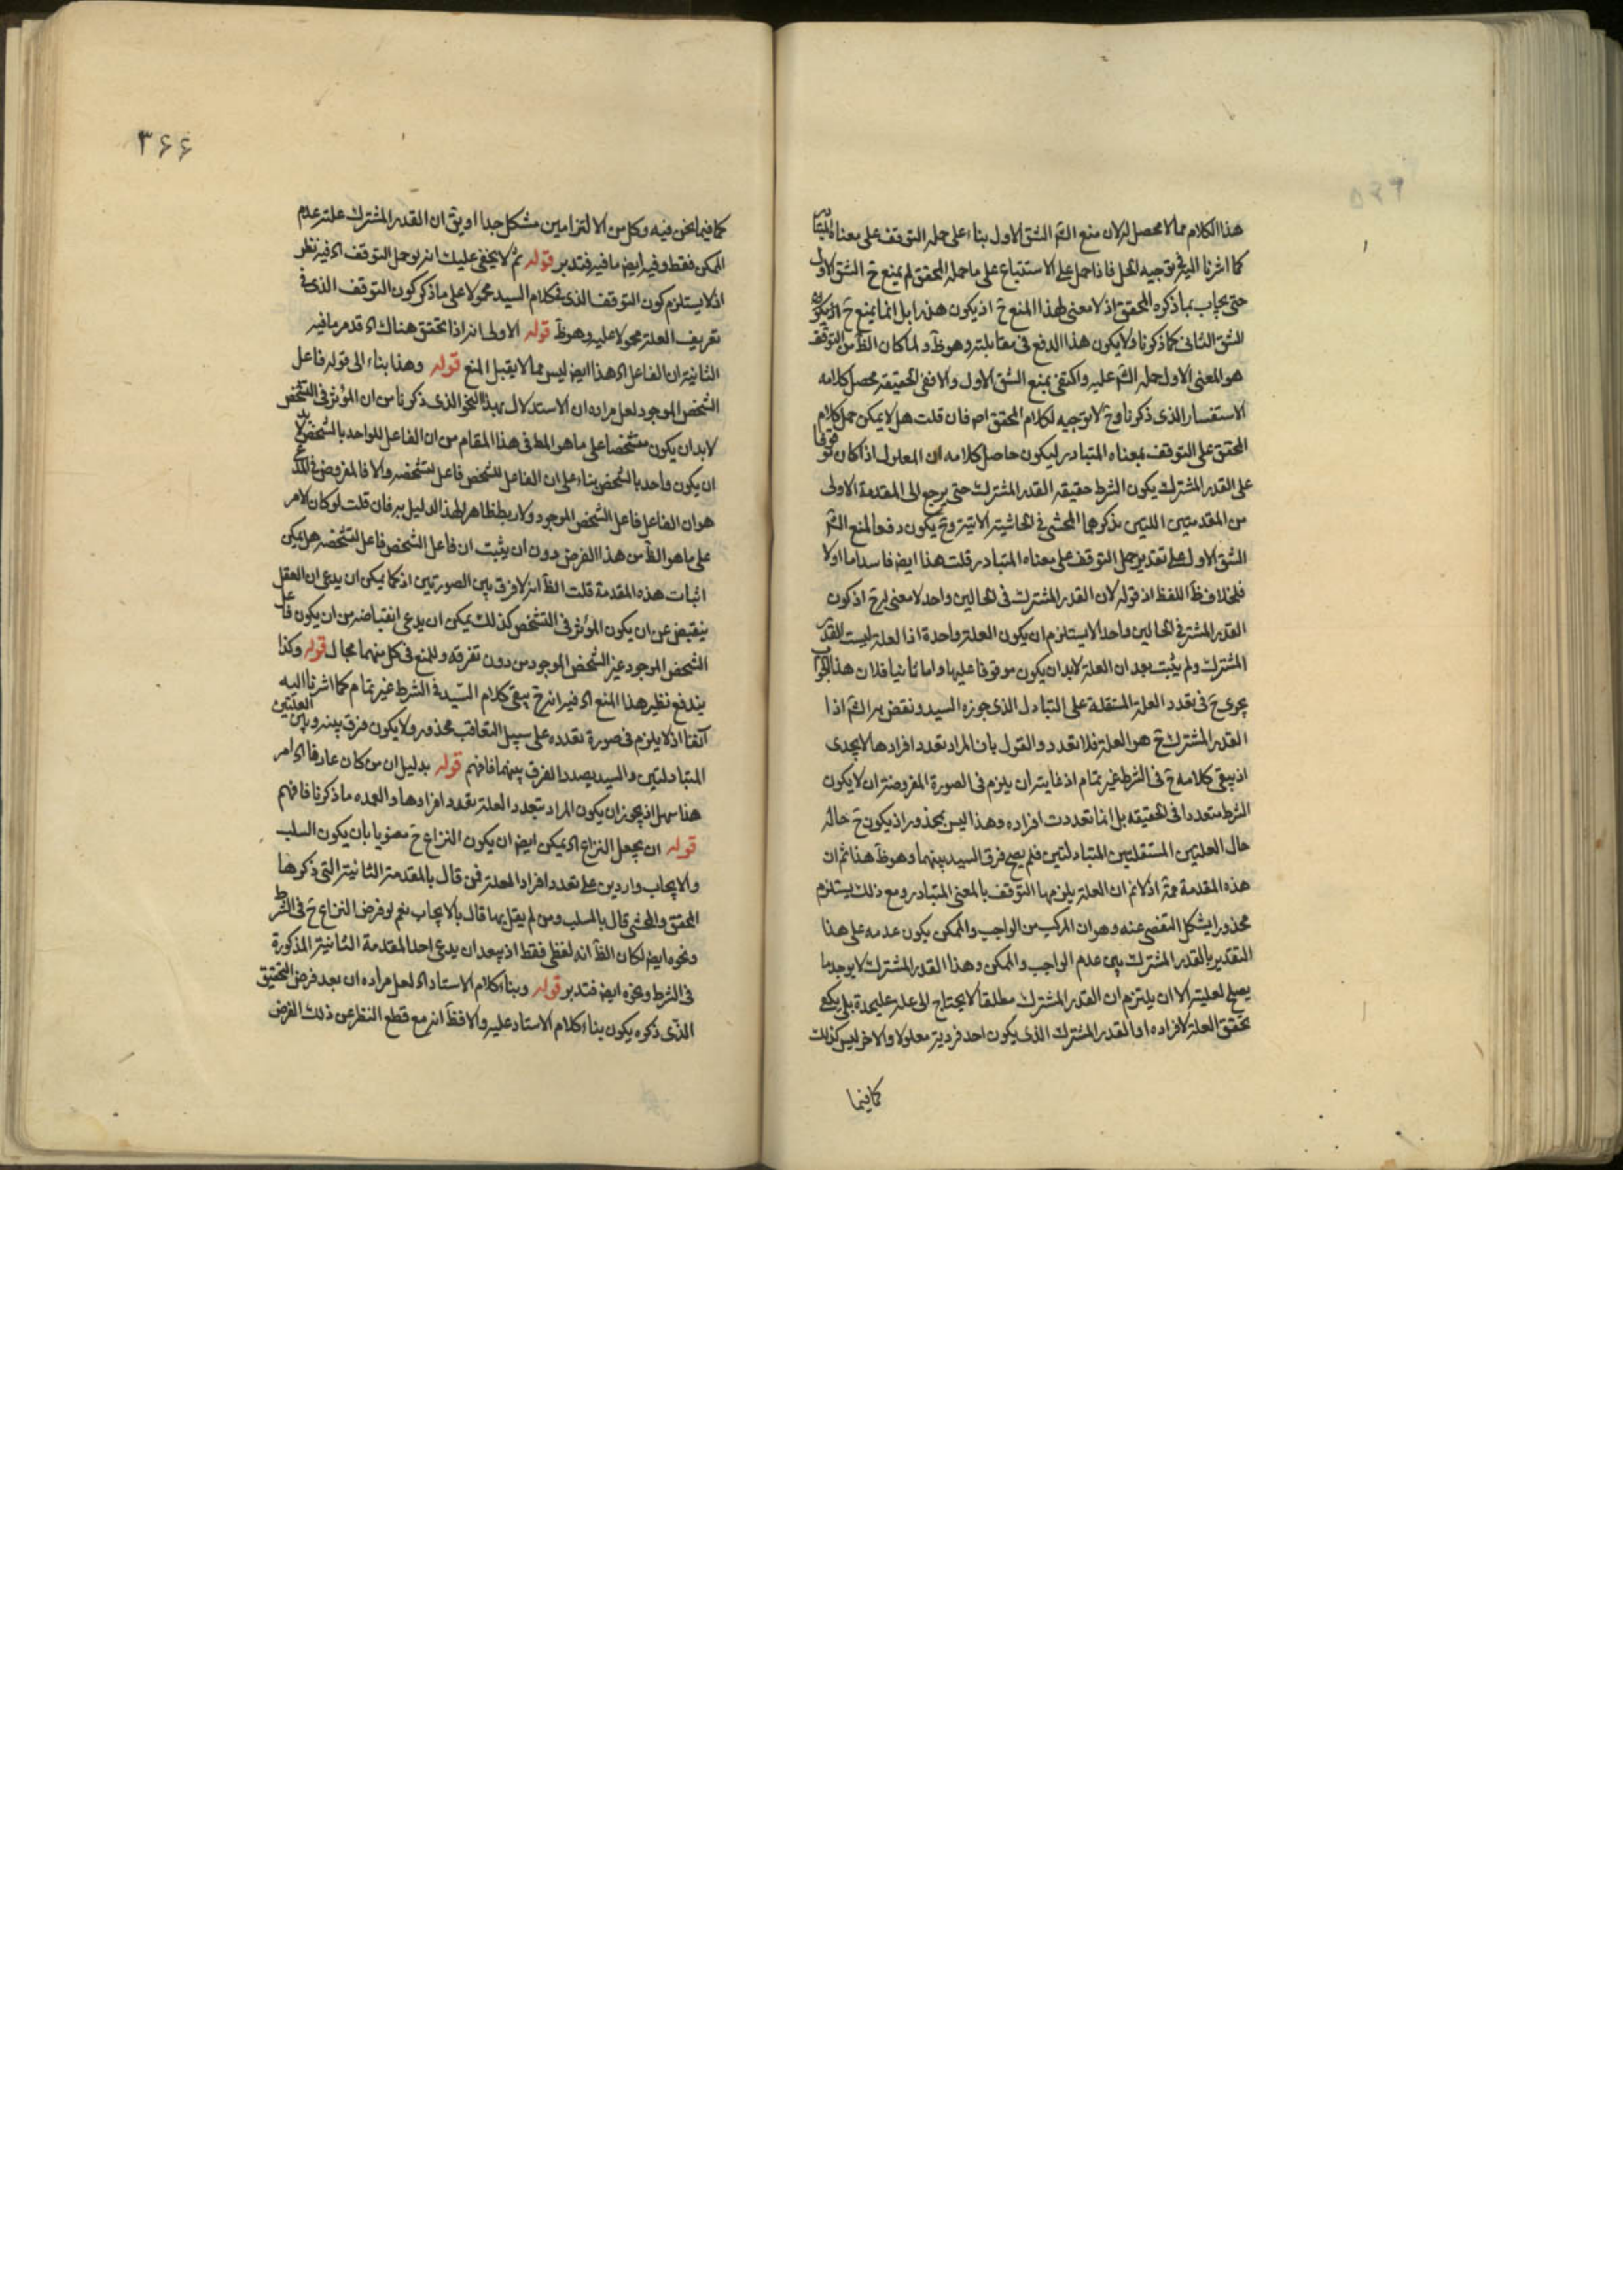 هذا الكلام مما لا محصل له لان منع الشم الشق الاول بناء على حمله التوقف على معناه المتبادر
كما اشرنا اليه في توجيه الحل فاذا حمل على الاستتباع على ما حمله المحقق لم يمنع ح الشق الاول
حتى يجاب بما ذكره المحقق اذ لا معنى لهذا المنع ح اذ يكون هذرا بل انما يمنع ح
الشق الثانى كما ذكرنا ولا يكون هذا الدفع فى مقابلته وهو ظ ولما كان الظ من التوقف
هو المعنى الاول حمله الشم عليه واكتفى بمنع الشق الاول والا ففى الحقيقة محصل كلامه
الاستفسار الذى ذكرنا وح لا توجيه لكلام المحقق اصـ فان قلت هل لا يمكن حمل كلام
المحقق على التوقف بمعناه المتبادر ليكون حاصل كلامه ان المعلول اذا كان موقوفا
على القدر المشترك يكون الشرط حقيقة القدر المشترك حتى يرجع الى المقدمة الاولى
من المقدمتين اللتين يذكرهما المحشى فى الحاشية الاتية وح يكون دفعا لمنع الشم
الشق الاول على تقدير حمل التوقف على معناه المتبادر قلت هذا ايض فاسد اما اولا
فلخلاف ظ اللفظ اذ قوله لان القدر المشترك فى الحالين واحد لا معنى له ح اذ كون
القدر المشترك فى الحالين واحد لا يستلزم ان يكون العلة واحدة اذا لعله ليست القدر
المشترك ولم يثبت بعد ان العلة لابد ان يكون موقوفا عليها واما ثانيا فلان هذا الجواب
يجرى ح فى تعدد العلة المستقلة على التبادل الذى جوزه السيد ونقض به الشم اذا
القدر المشترك ح هو العلة فلا تعدد والقول بان المراد تعدد افرادها لا يجدى
اذ يبقى كلامه ح فى الشرط غير تمام اذ غايته ان يلزم فى الصورة المفروضة ان لا يكون
الشرط متعددا فى الحقيقة بل انما تعددت افراده وهذا ليس بمحذور اذ يكون ح حاله
حال العلتين المستقلتين المتبادلتين فلم يصح فرق السيد بينهما وهو ظ هذا ثم ان
هذه المقدمة مم اذ لا نم ان العلة يلزمها التوقف بالمعنى المتبادر ومع ذلك يستلزم
محذورا يشكل التفصى عنه وهو ان المركب من الواجب والممكن يكون عدمه على هذا
التقدير بالقدر المشترك بين عدم الواجب والممكن وهذا القدر المشترك لا يوجد ما
يصلح لعليته الا ان يلتزم ان القدر المشترك مطلقا لا يحتاج الى علة عليحدة بل يكفى
تحقق العلة لافراده او القدر المشترك الذى يكون احد فرديه معلولا والاخر ليس كذلك
كما فيما
٣۶۶
كما فيما نحن فيه وكل من الالتزامين مشكل جدا او يق ان القدر المشترك علة عدم
الممكن فقط وفيه ايض ما فيه فتدبر قوله ثم لا يخفى عليك انه لو حمل التوقف اه فيه نظر
اذ لا يستلزم كون التوقف الذى فى كلام السيد محمولا على ما ذكر كون التوقف الذى فى
تعريف العلة محمولا عليه وهو ظ قوله الاولى انه اذا تحقق هناك اه قد مر ما فيه
الثانية ان الفاعل اه هذا ايض ليس مما لا يقبل المنع قوله وهذا بناء الى قوله فاعل
الشخص الموجود لعل مراده ان الاستدلال بهذا النحو الذى ذكرنا من ان المؤثر فى التشخص
لابد ان يكون متشخصا على ما هو المط فى هذا المقام من ان الفاعل للواحد بالشخص لابد
ان يكون واحد بالشخص بناء على ان الفاعل للشخص فاعل لتشخصه والا فالمفروض فى
هو ان الفاعل فاعل الشخص الموجود ولا ربط ظاهر لهذا الدليل به فان قلت لو كان الامر
على ما هو الظ من هذا الفرض دون ان يثبت ان فاعل الشخص فاعل لتشخصه هل يمكن
اثبات هذه المقدمة قلت الظ انه لا فرق بين الصورتين اذ كما يمكن ان يدعى ان العقل
ينقبض عن ان يكون المؤثر فى التشخص كذلك يمكن ان يدعى انقباضه من ان يكون فاعل
الشخص الموجود غير الشخص الموجود من دون تفرقة وللمنع فى كل منهما مجال قوله وكذا
يندفع نظير هذا المنع اه فيه انه ح يبقى كلام السيد فى الشرط غير تمام كما اشرنا اليه
آنفا اذ لا يلزم فى صورة تعدده على سبيل التعاقب محذور ولا يكون فرق بينه وبين العلتين
المتبادلتين والسيد بصدد الفرق بينهما فافهم قوله بدليل ان من كان عارفا اه امر
هنا سهل اذ يجوز ان يكون المراد بتعدد العلة تعدد افرادها والعمدة ما ذكرنا فافهم
قوله ان يجعل النزاع اه يمكن ايض ان يكون النزاع ح معنويا بان يكون السلب
والايجاب واردين على تعدد افراد العلة فمن قال بالمقدمة الثانية التى ذكرها
المحقق والمحشى قال بالسلب ومن لم يقل بها قال بالايجاب نعم لو فرض النزاع ح فى الشرط
ونحوه ايض لكان الظ انه لفظى فقط اذ يبعد ان يدعى احد المقدمة الثانية المذكورة
فى الشرط ونحوه ايض فتدبر قوله وبناء كلام الاستاد اه لعل مراده ان بعد فرض التحقيق
الذى ذكره يكون بناء كلام الاستاد عليه والا فظ انه مع قطع النظر عن ذلك الفرض